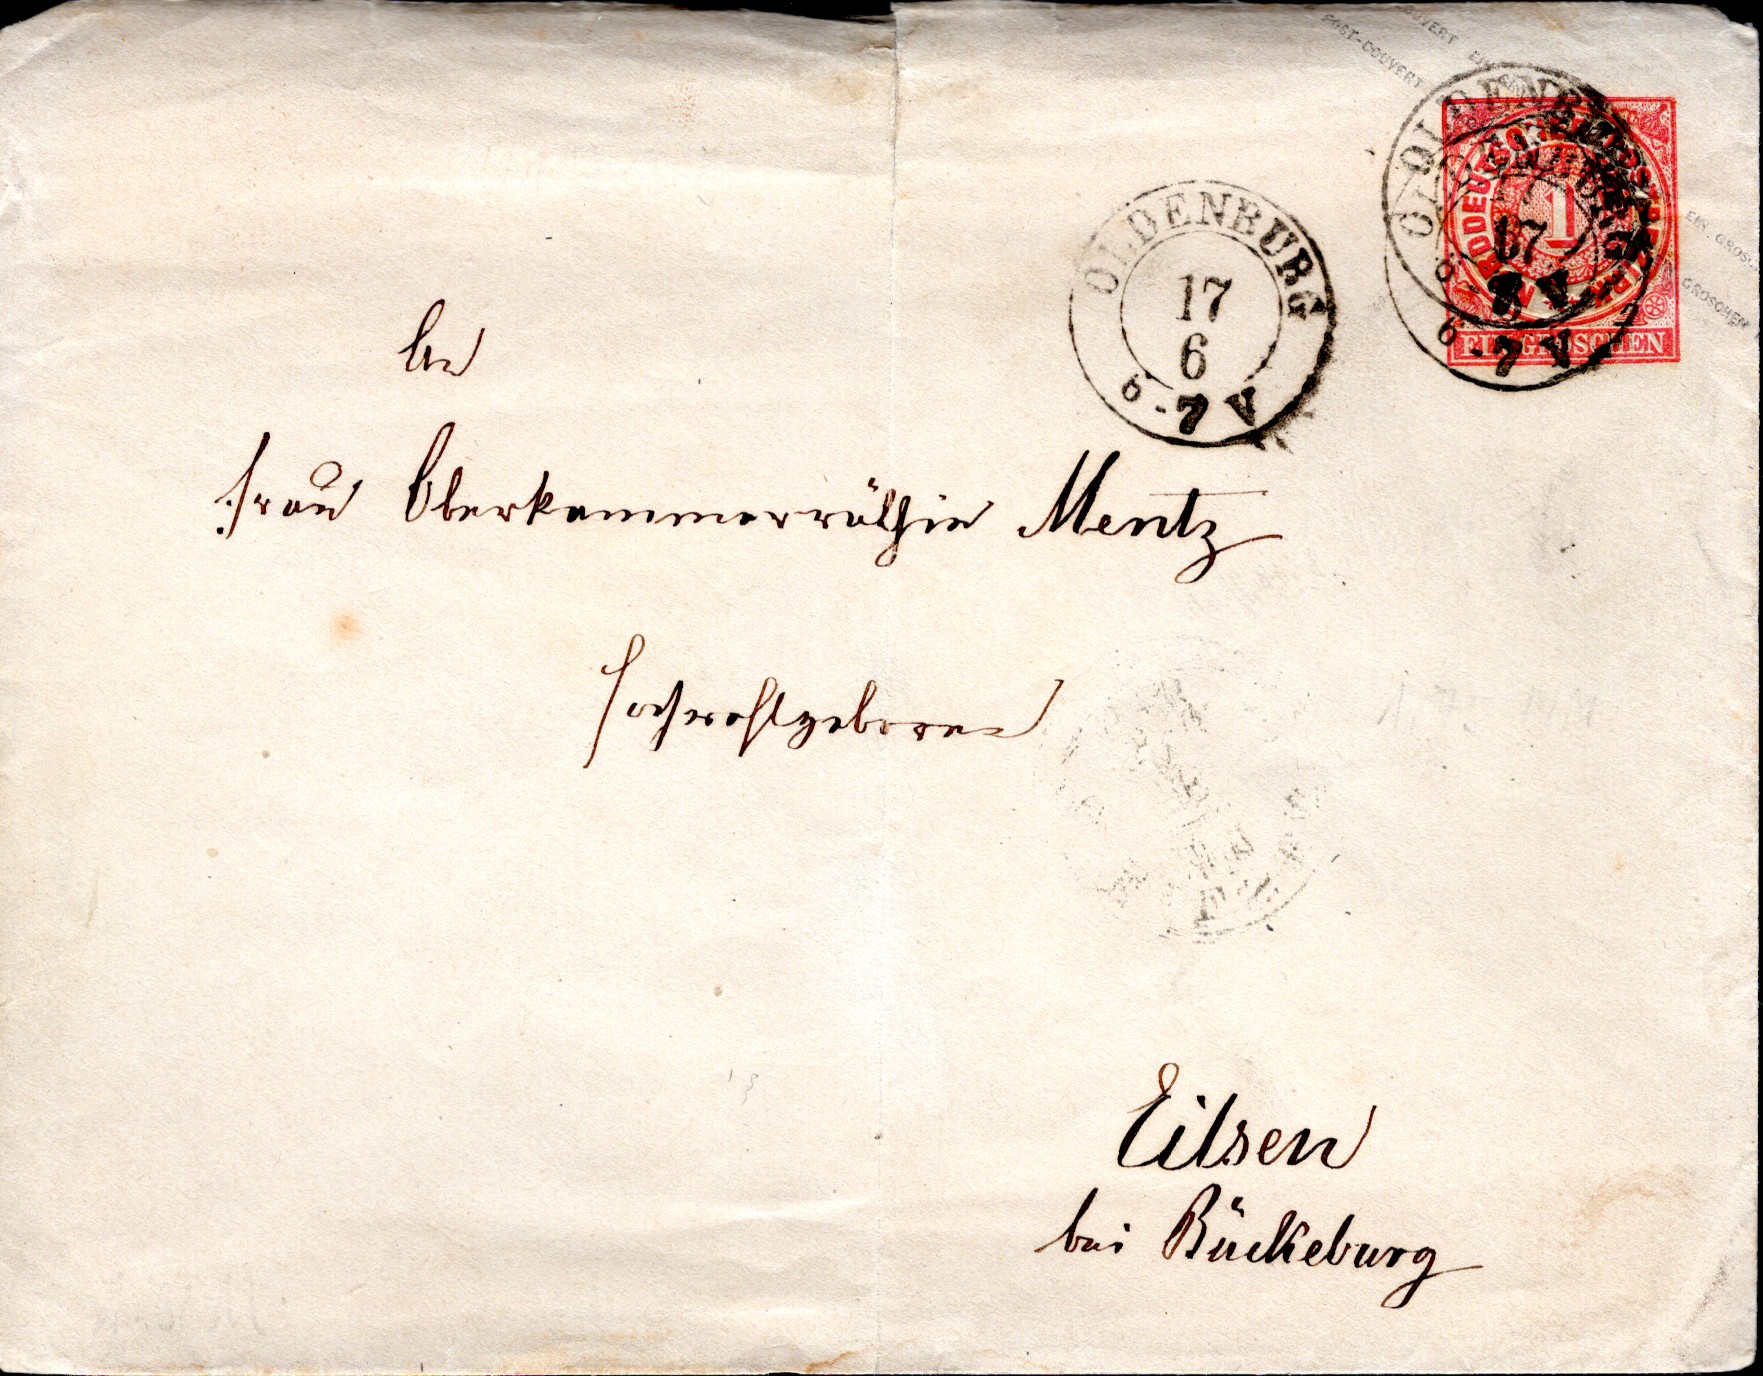 POST-COUVERT
COUVERT EIN
EIN GROSCHEN
GROSCHEN
OLDENBURG
17
6
6-7 V
OLDENBURG
17
6-7 V
NORDDEUTSCHER POSTBEZIRK
1
EIN GROSCHEN
An
Frau Oberkammerräthin Mentz
Hochwohlgeboren
Eilsen
bei Bückeburg